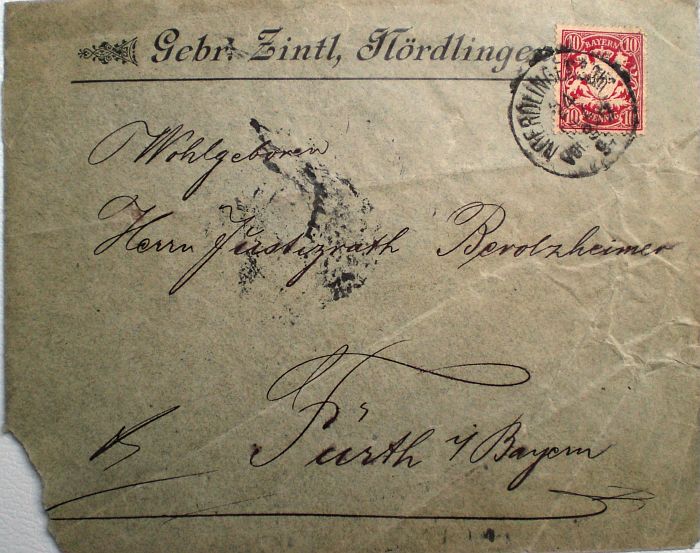 Gebr. Zintl, Nördlingen
10 BAYERN 10
10 PFENNIG 10
NOERDLINGEN
Wohlgeboren
Herrn Justizrath Berolzheimer
Fürth i/Bayern